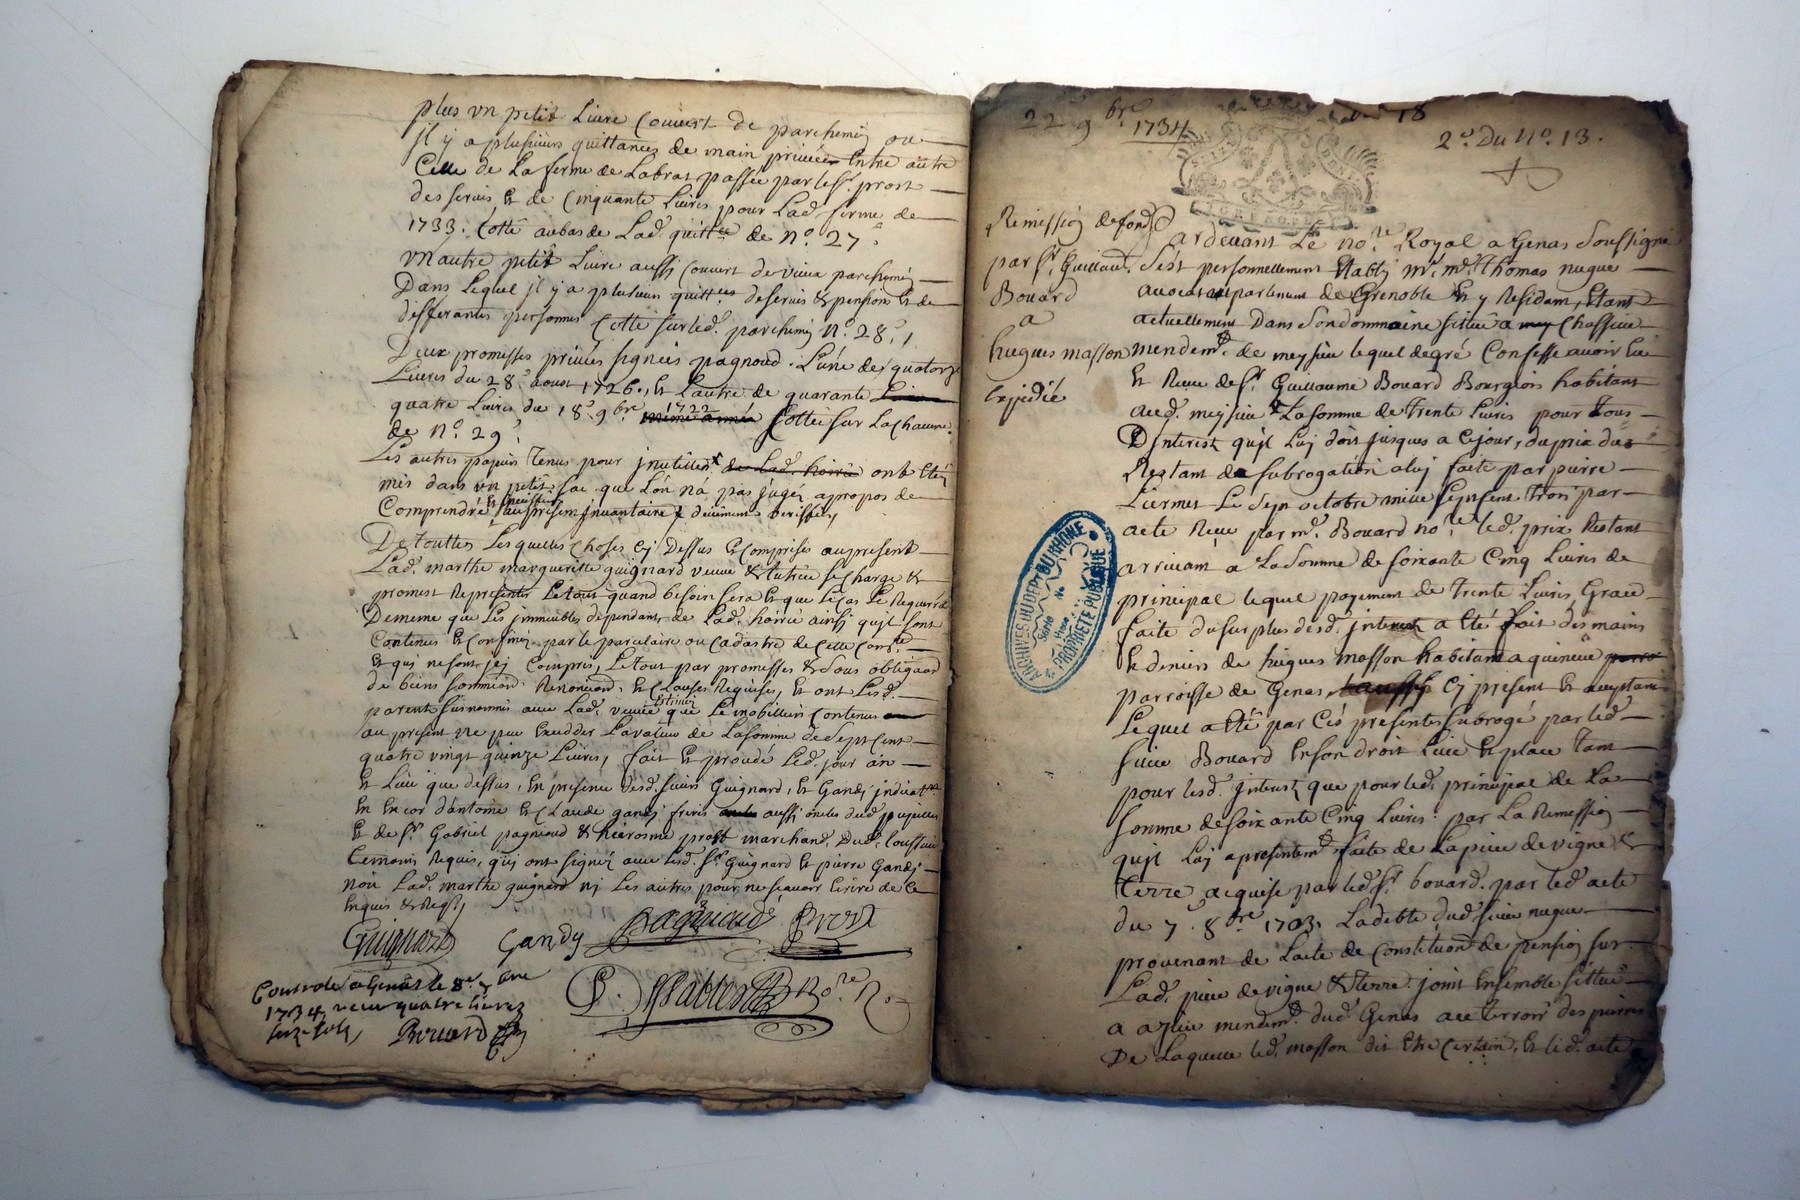 plus un petit Livre Couvert de parchemin ou
Il y a plusieurs quittances de main privée Entre autre
Celle de La ferme de Labrat passée par le Sr. prost
des servis, Et de Cinquante Livres pour Lad. ferme de
1733. Cotté au bas de Lad. quittce de No. 27.
un autre petit Livre aussi Couvert de vieux parchemin
Dans Lequel il y a plusieurs quittces de servis & pensions Et de
differantes personnes Cotté sur led. parchemin No. 28.
Deux promesses privées signées pagnoud. L'une de quatorze
Livres du 28e. aoust 1726. Et L'autre de quarante
quatre Livres du 18e. 9bre 1722 Cottées sur La
de No. 29.
Les autres papiers tenus pour inutilles de Lad. hoirie ont Eté
mis dans un petit sac que L'on n'a pas jugé apropos de
Comprendre au présent Inventaire
De touttes Lesquelles Choses Cy Dessus Et Comprises au present
Lad. marthe marguerite guignard veuve & tutrice se charge &
promet Representer Le tout quand besoin sera Et que Le Cas Le Requerra
De meme que Les immeubles dependants de Lad. hoirie ainsi qu'il sont
Contenus Et Confinés par le parcelaire ou Cadastre de Cette Comté.
Et qui ne sont icy Compris, Le tout par promesses & sous obligaon
de biens Renonciaon. & Clauses Requises, Et ont Lesd.
parents surnommés avec Lad. veuve Estimé que Le mobilliers Contenus
au present ne peu Exedder La valeur de La somme de Sept Cent
quatre vingt quinze Livres, fait Et Led. jour an
Et Lieu que dessus, En presence desd. sieurs Guignard, Et Gandy
En Encor d'antoine Et Claude gandy freres aussi oncles dud. pupilles
Et de Sr. Gabriel pagnoud & hierosme prost marchand Dud.
temoins Requis, qui ont signéz avec Lesd. Sr. Guignard Et pierre Gandy
non Lad. marthe guignard ny Les autres pour ne scavoir Ecrire de Ce
Enquis & Reqs.
Guignard Gandy Pagnoud Prost
Controllé a Genas le 8e. 9bre
1734, receu quatre livres
seize sols Bouard
No.re R.
22 9bre 1734
18
2e. Du No. 13.
Remission de fond
par Sr. Guillaue.
Bouard
a
hugues masson
Expedié
Pardevant Le No.re Royal a Genas soussigné
s'est personnellement Etably Mr. me. Thomas nugue
avocat au parlement de Grenoble Et y Residant, Etant
actuellement Dans son dommaine situé a Chassieu
mendemt. de meyzieu lequel de gré Confesse avoir Eu
Et Receu de Sr. Guillaume Bouard Bourgeois habitant
aud. meyzieu La somme de trente Livres pour Tous
D'interest qu'il Luy doit jusques a Ce jour, du prix
Restant de subrogation a luy faite par pierre
Liermet Le Sept octobre mille Sept cent trois par
acte Receu par me. Bouard no.re led. prix Restant
arrivant a La Somme de soixante Cinq Livres de
principal lequel payement de trente Livres Grace
faite du surplus desd. interest a Eté fait des mains
Et deniers de hugues masson habitant a
parroisse de Genas, Cy present Et acceptant
Lequel a Eté par Ces presentes subrogé par led.
sieur Bouard En son droit Lieu Et place tant
pour lesd. interest que pour led. principal de La
somme de soixante Cinq Livres par La Remission
qu'il Luy a presentemt. faite de La piece de vigne &
terre acquise par led. Sr. bouard. par led. acte
du 7e. 8bre 1703. La debte dud. sieur nugue
provenant de L'acte de Constitution de pension sur
Lad. piece de vigne & terre joint Ensemble sittué
a azieu mendemt. dud. Genas au terroir des pierres
De Laquelle led. masson dit Etre Certain, Et led. acte
ARCHIVES DU DEPT DU RHONE
PROPRIÉTÉ PUBLIQUE